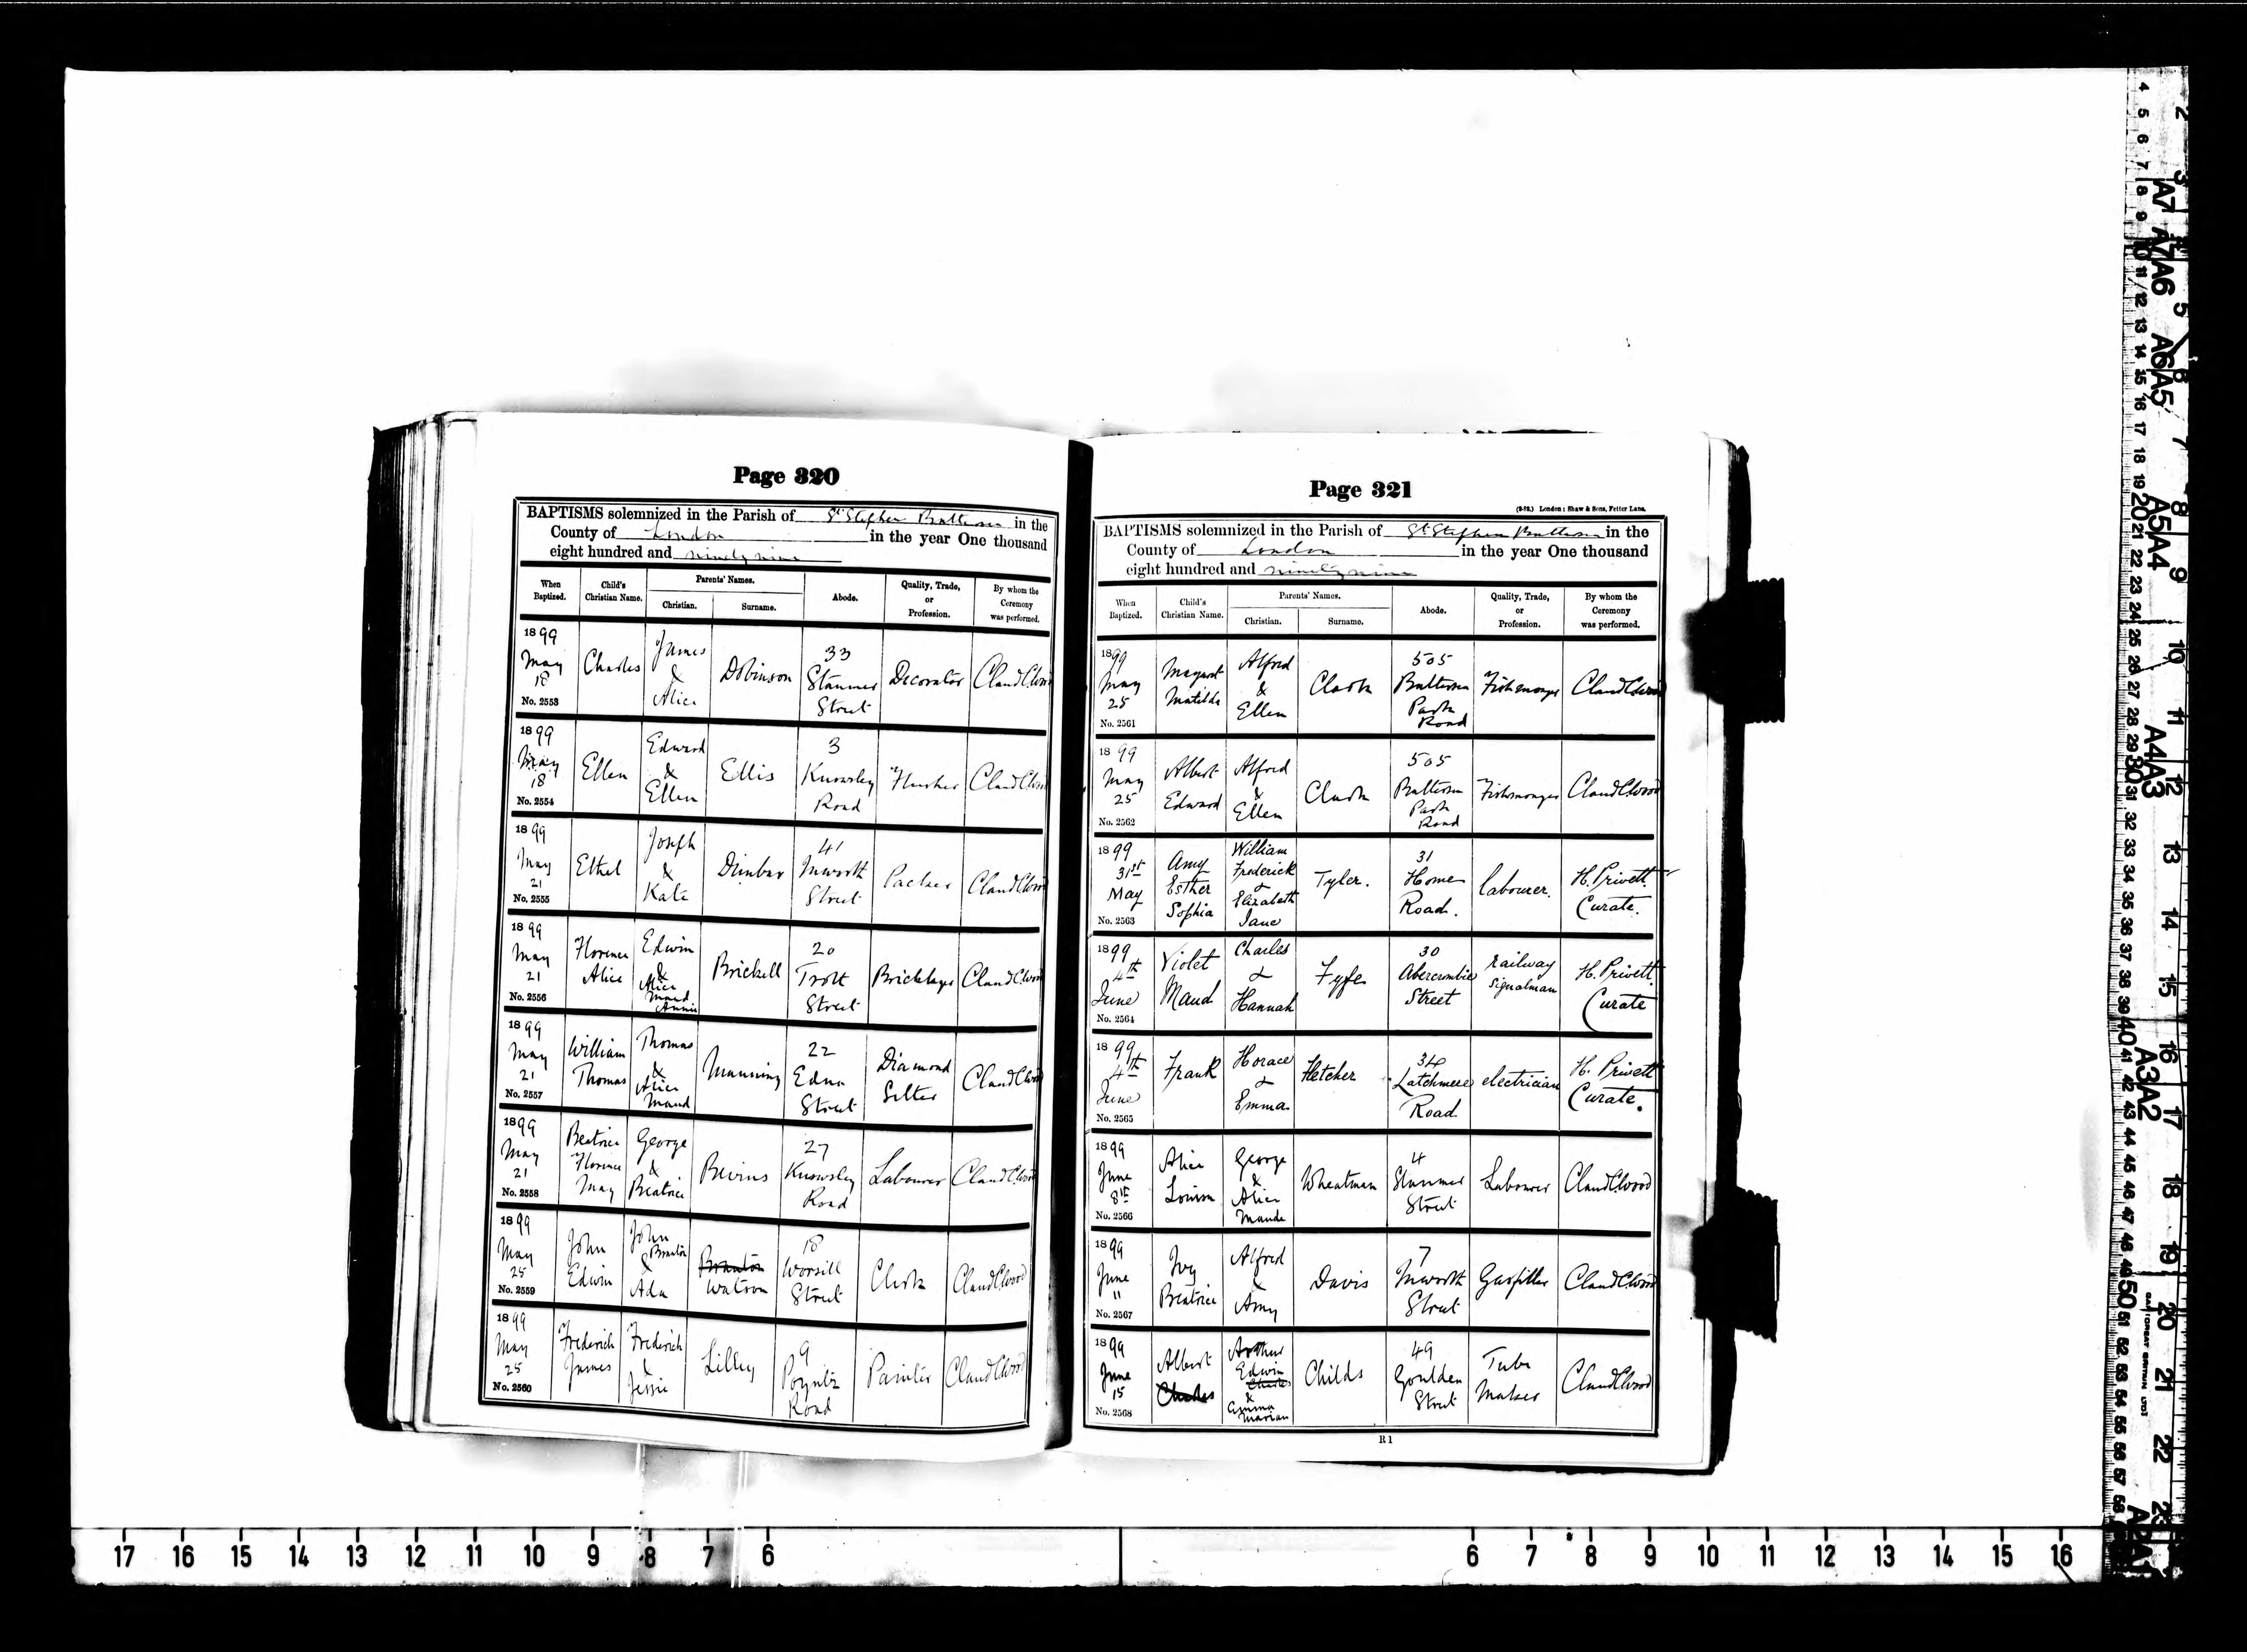 Page 320
BAPTISMS solemnized in the Parish of St Stephen Battersea in the
County of London in the year One thousand
eight hundred and ninety nine
When Baptized. Child's Christian Name. Parents' Names. Christian. Surname. Abode. Quality, Trade, or Profession. By whom the Ceremony was performed.
1899 May 18 No. 2553 Charles James & Alice Dobinson 33 Stanmer Street Decorator Claud C Wood
1899 May 18 No. 2554 Ellen Edward & Ellen Ellis 3 Knowsley Road Flusher Claud C Wood
1899 May 21 No. 2555 Ethel Joseph & Kate Dunbar 41 Inworth Street Packer Claud C Wood
1899 May 21 No. 2556 Florence Alice Edwin & Alice Maud Annie Brickell 20 Trott Street Bricklayer Claud C Wood
1899 May 21 No. 2557 William Thomas Thomas & Alice Maud Manning 22 Edna Street Diamond Setter Claud C Wood
1899 May 21 No. 2558 Beatrice Florence May George & Beatrice Bevins 27 Knowsley Road Labourer Claud C Wood
1899 May 25 No. 2559 John Edwin John Branton & Ada Branton Watson 18 Worsill Street Clerk Claud C Wood
1899 May 25 No. 2560 Frederick James Frederick & Jessie Lilley 9 Poyntz Road Painter Claud C Wood
Page 321
(9-92.) London: Shaw & Sons, Fetter Lane.
BAPTISMS solemnized in the Parish of St Stephen Battersea in the
County of London in the year One thousand
eight hundred and ninety nine
When Baptized. Child's Christian Name. Parents' Names. Christian. Surname. Abode. Quality, Trade, or Profession. By whom the Ceremony was performed.
1899 May 25 No. 2561 Margaret Matilda Alfred & Ellen Clark 505 Battersea Park Road Fishmonger Claud C Wood
1899 May 25 No. 2562 Albert Edward Alfred & Ellen Clark 505 Battersea Park Road Fishmonger Claud C Wood
1899 31st May No. 2563 Amy Esther Sophia William Frederick & Elizabeth Jane Tyler. 31 Home Road. labourer. H. Privett. Curate.
1899 4th June No. 2564 Violet Maud Charles & Hannah Fyfe 30 Abercrombie Street railway signalman H. Privett. Curate
1899 4th June No. 2565 Frank Horace & Emma Fletcher 34 Latchmere Road electrician H. Privett Curate.
1899 June 8th No. 2566 Alice Louisa George & Alice Maude Wheatman 4 Stanmer Street Labourer Claud C Wood
1899 June 11 No. 2567 Ivy Beatrice Alfred & Amy Davis 7 Inworth Street Gasfitter Claud C Wood
1899 June 15 No. 2568 Albert Charles Arthur Edwin Charles & Emma Marian Childs 49 Goulden Street Tube Maker Claud C Wood
R 1